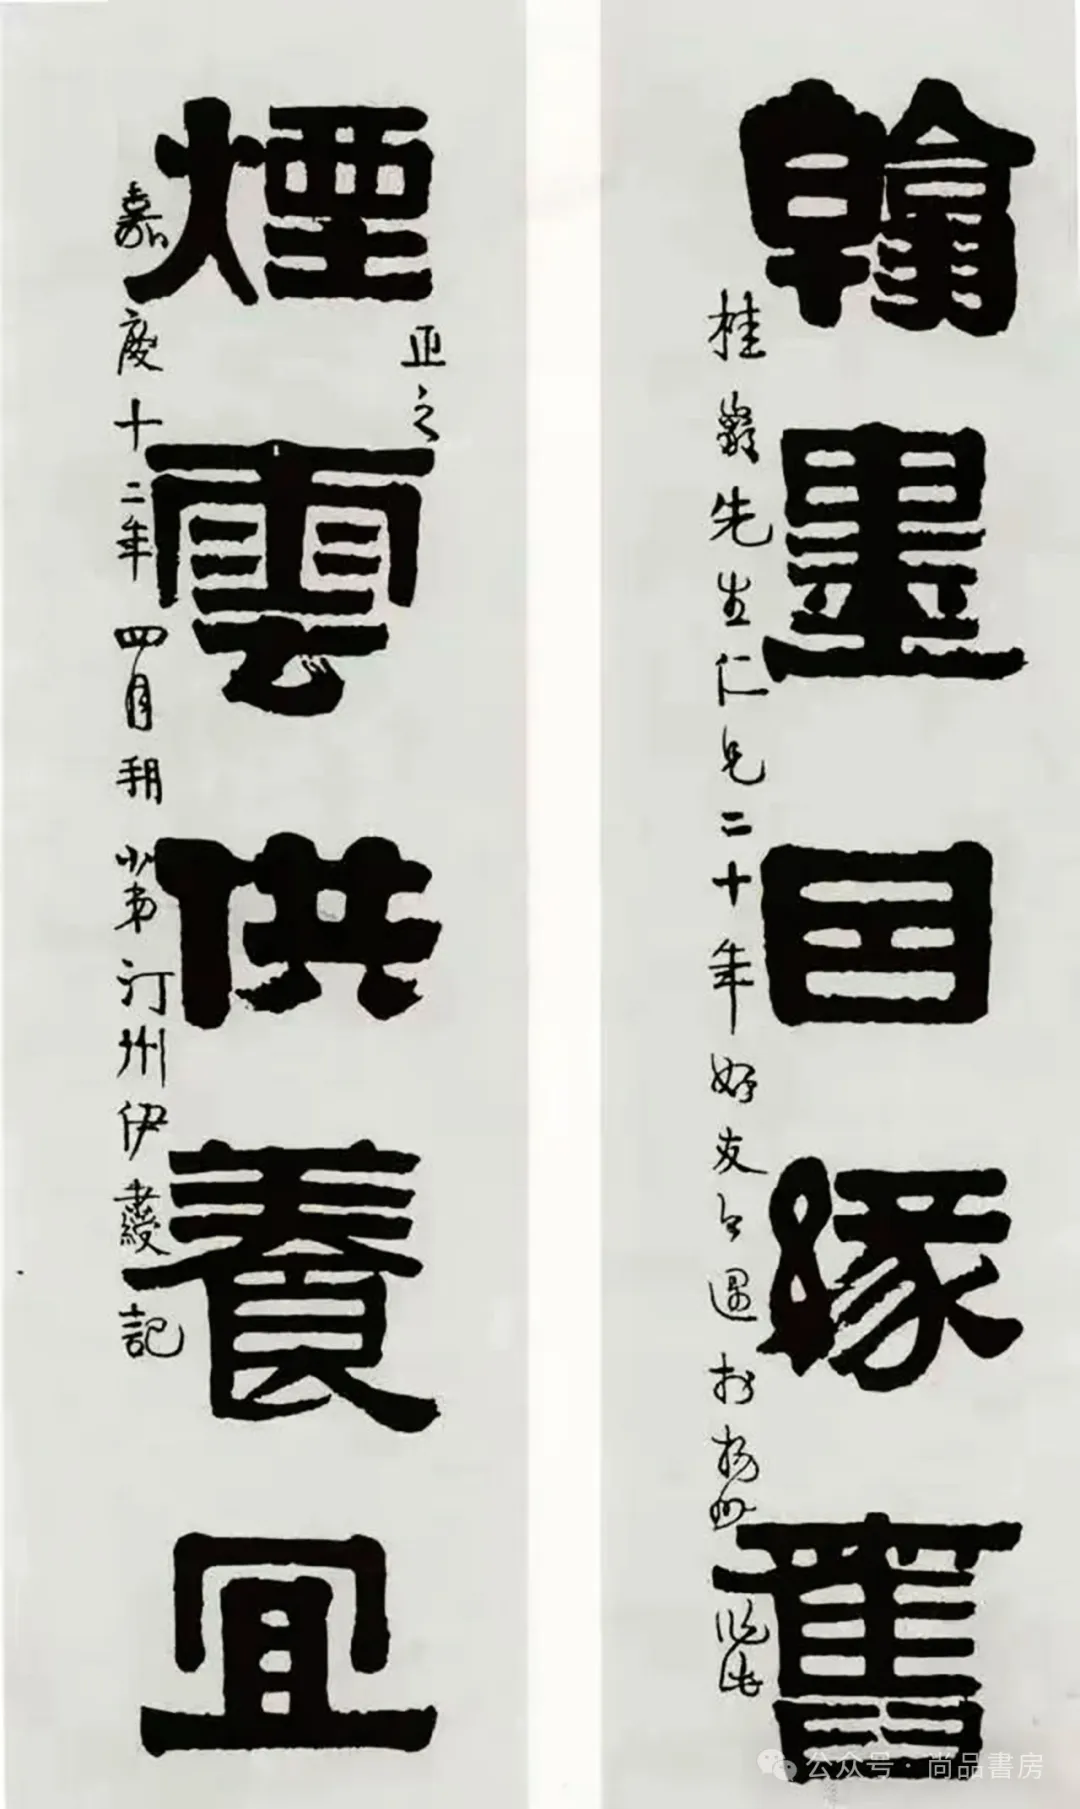 翰墨因緣舊
桂巖先生仁兄二十年好友今遇於揚州
煙雲供養宜
正之
嘉慶十二年四月朔小弟汀州伊秉綬記
公众号·尚品書房